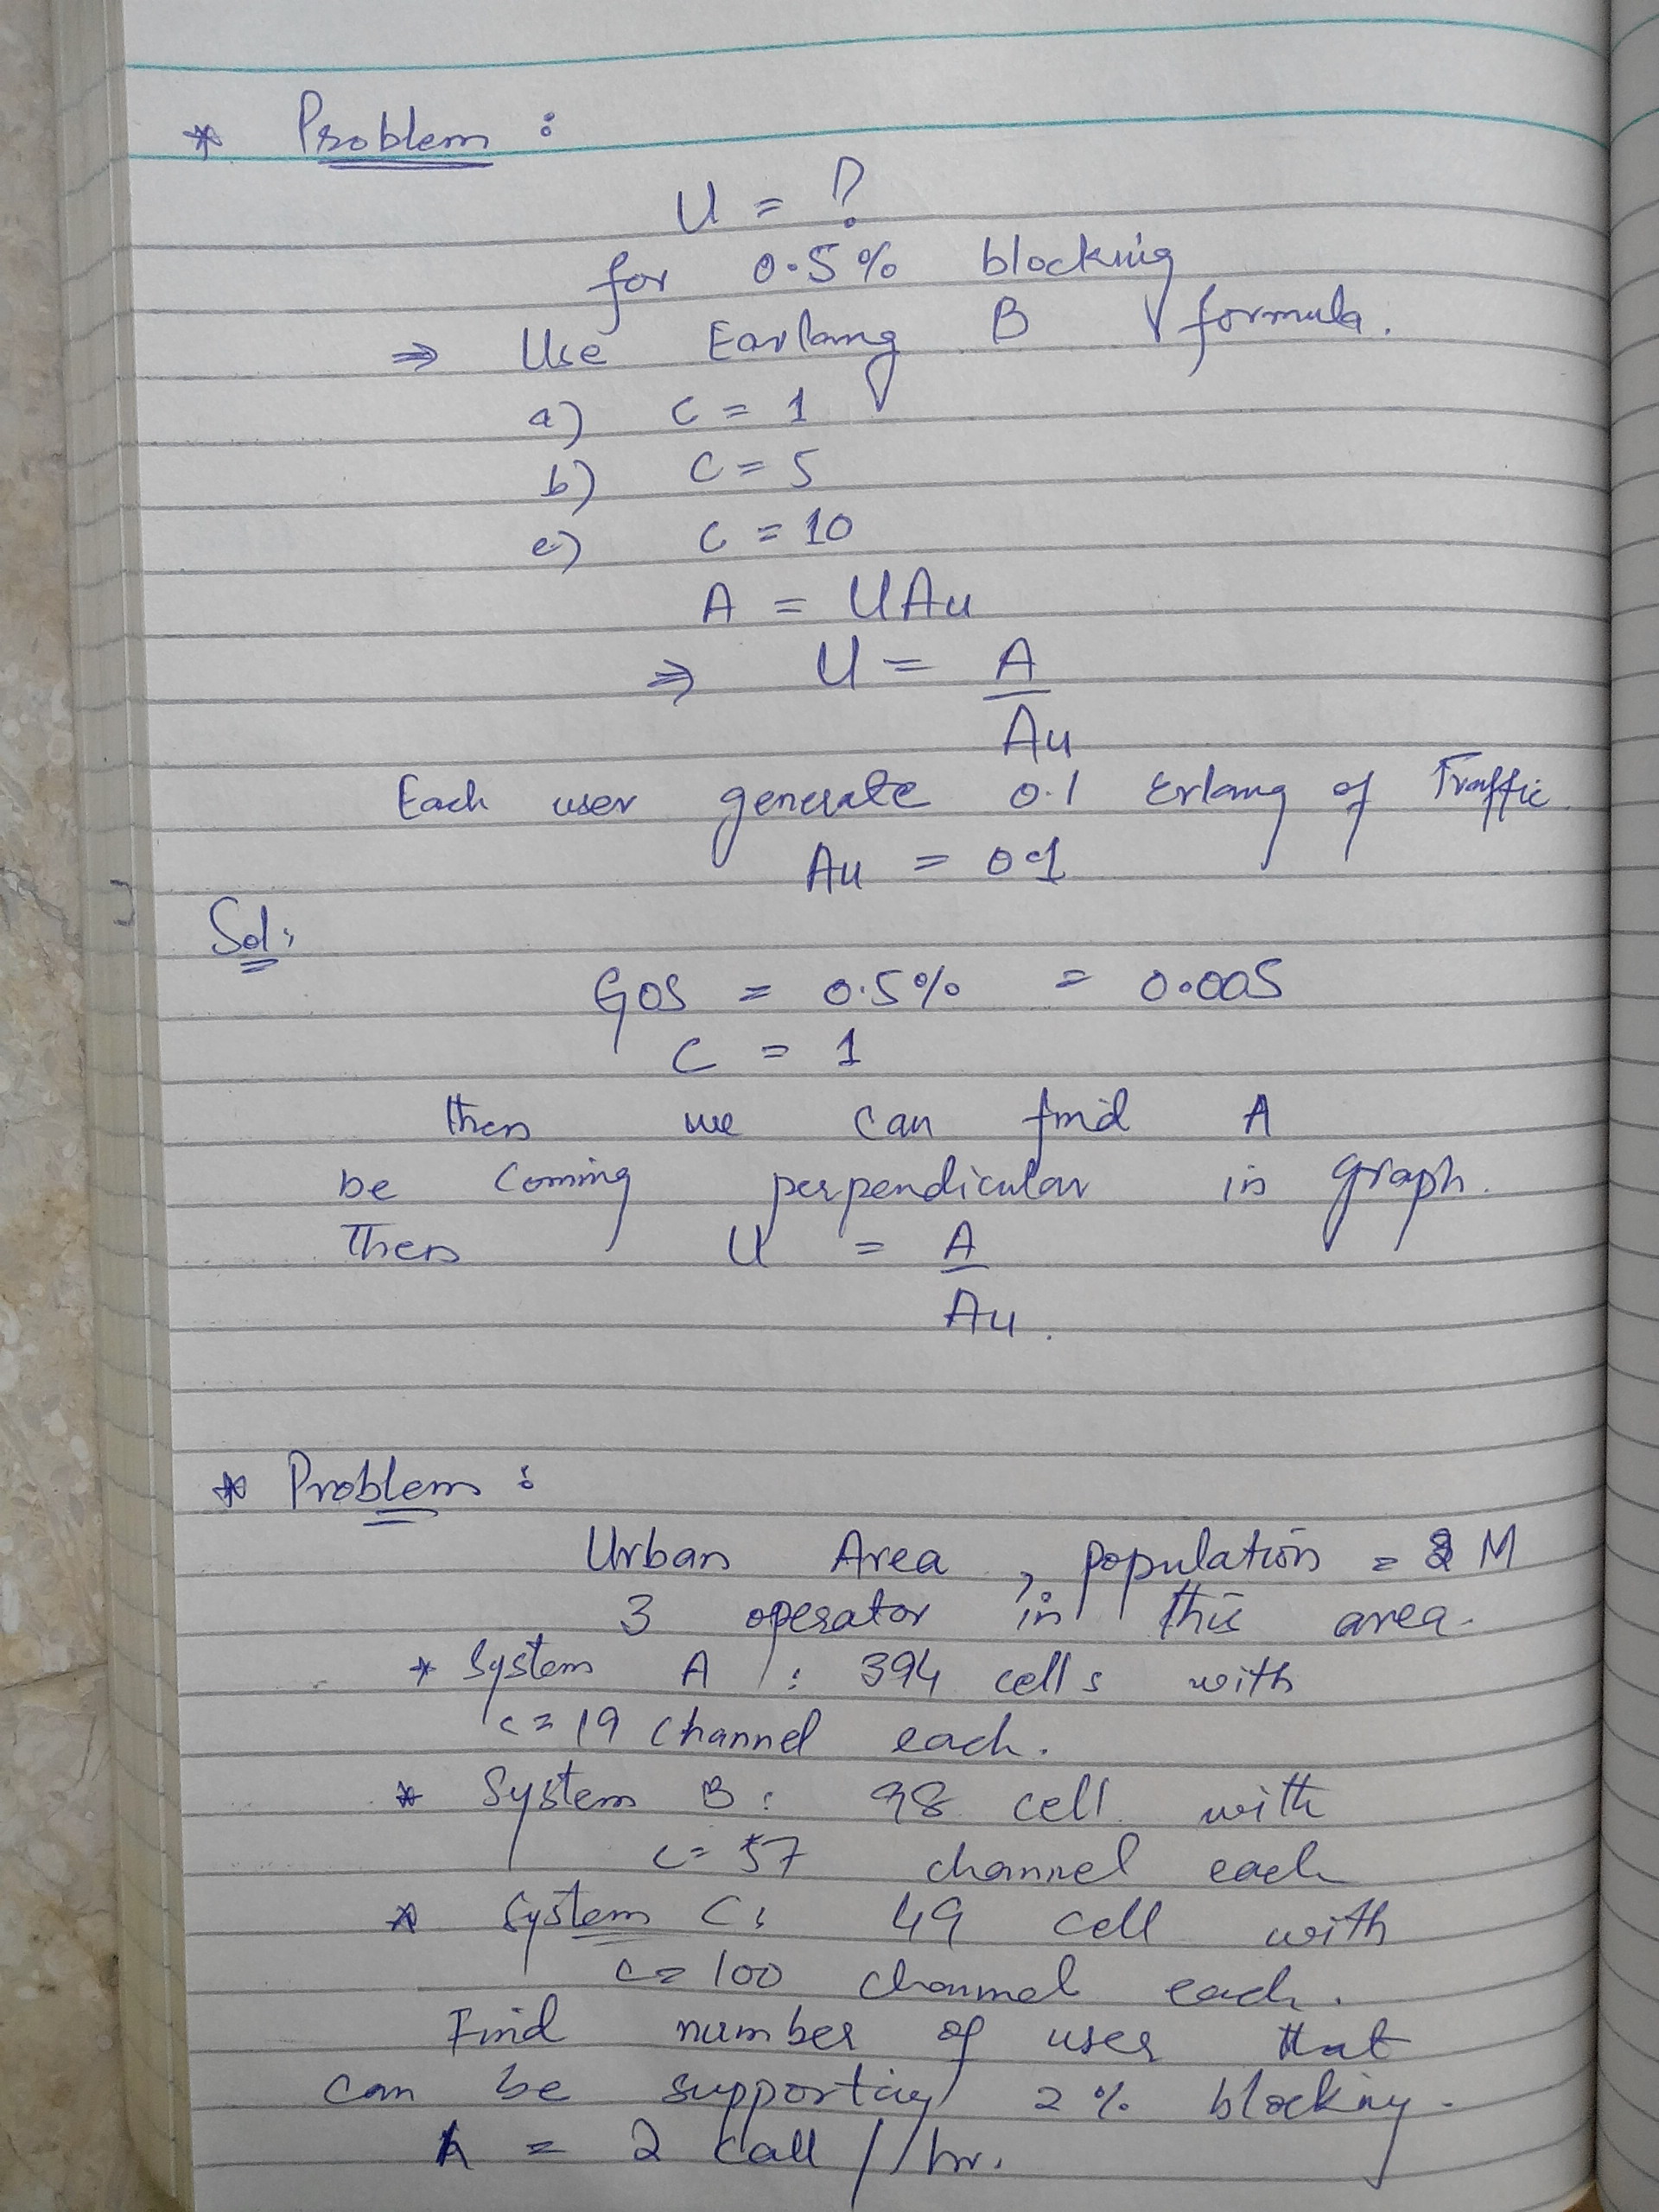 * Problem :
U = ?
for 0.5% blocking
⇒ Use Earlang B formula.
a) C = 1
b) C = 5
c) C = 10
A = UAu
⇒ U = A/Au
Each user generate 0.1 Erlang of Traffic.
Au = 0.1
Sol:
GOS = 0.5% = 0.005
C = 1
then we can find A
be coming perpendicular in graph.
Then U = A/Au.
* Problem :
Urban Area, population = 2 M
3 operator in this area.
* System A : 394 cells with
c = 19 channel each.
* System B : 98 cell with
c = 57 channel each
* System C : 49 cell with
c = 100 channel each.
Find number of user that
can be supporting 2% blocking.
= 2 call / hr.